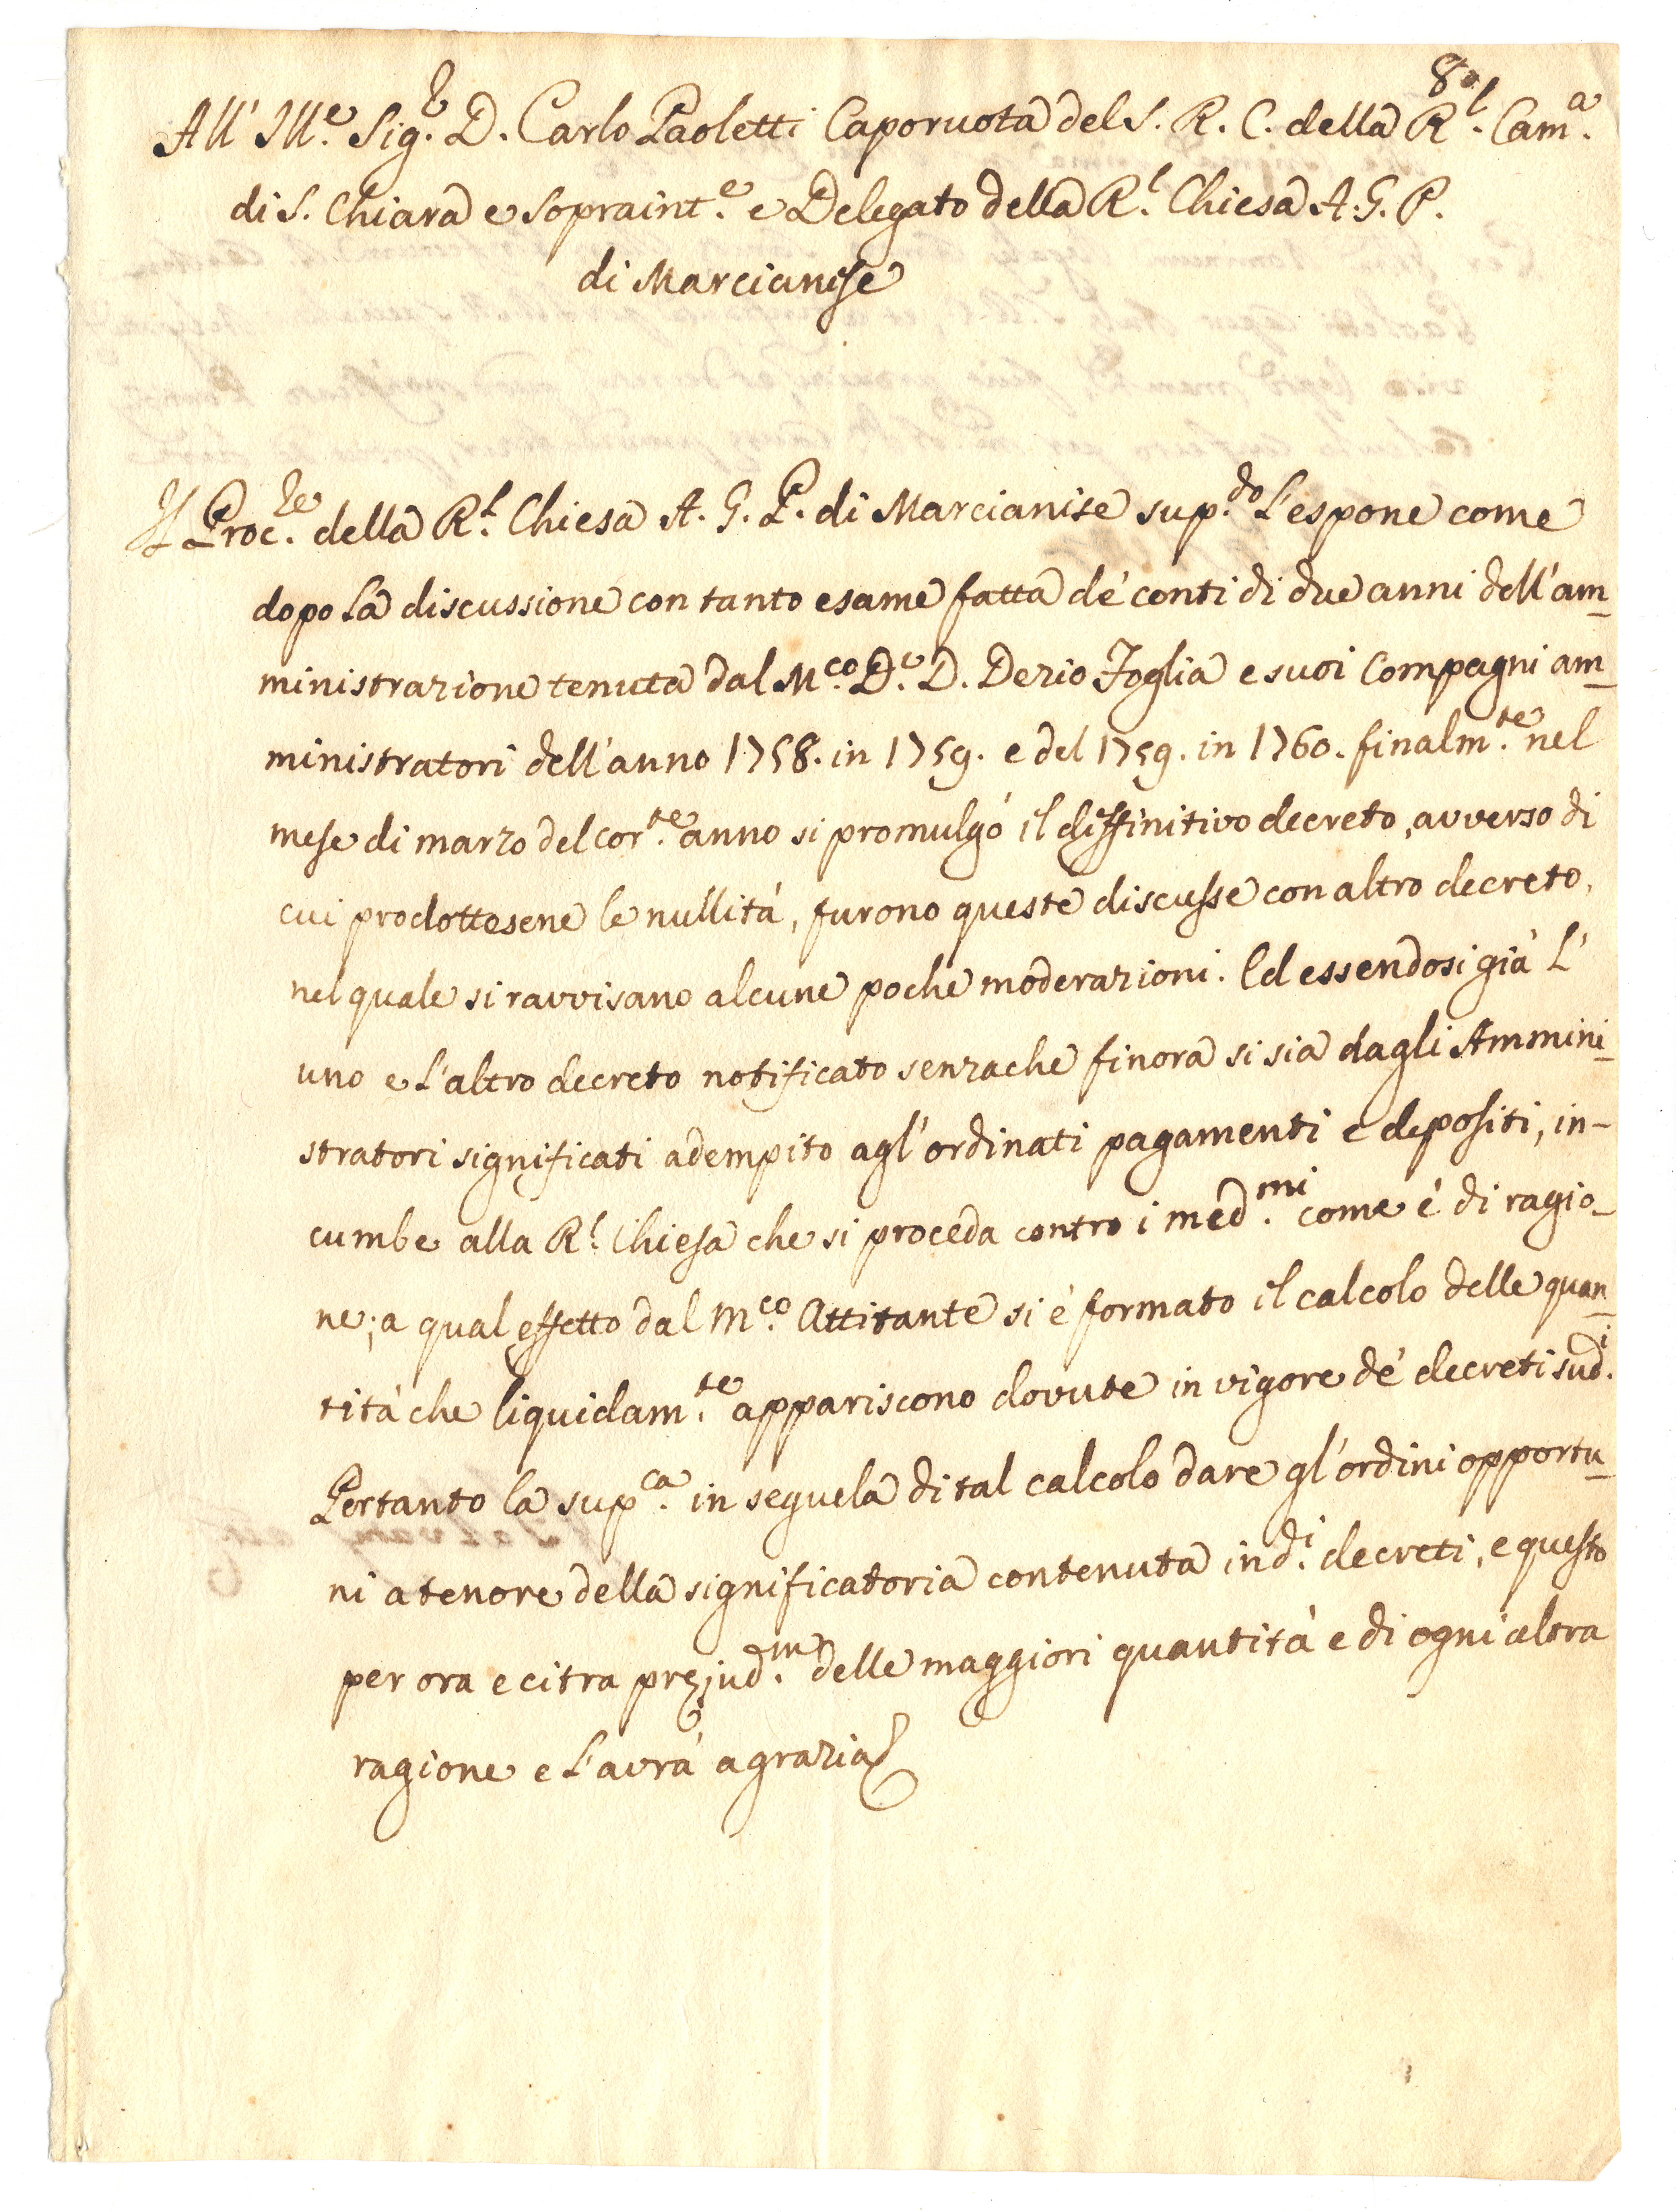 80
All' Ill.e Sig.r D. Carlo Paoletti Caporuota del S. R. C. della R.l Cam.a
di S. Chiara e Sopraint.e e Delegato della R.l Chiesa A. G. P.
di Marcianise
Il Proc.re della R.l Chiesa A. G. P. di Marcianise sup.do L'espone come
dopo la discussione con tanto esame fatta de' conti di due anni dell'am-
ministrazione tenuta dal M.co D.r D. Dezio Foglia e suoi Compagni am-
ministratori dell'anno 1758. in 1759. e del 1759. in 1760. finalm.te nel
mese di marzo del cor.te anno si promulgò il diffinitivo decreto, avverso di
cui prodottesene le nullità, furono queste discusse con altro decreto,
nel quale si ravvisano alcune poche moderazioni. Ed essendosi già l'
uno e l'altro decreto notificato senzache finora si sia dagli Ammini-
stratori significati adempito agl'ordinati pagamenti e depositi, in-
cumbe alla R.l Chiesa che si proceda contro i med.mi come è di ragio-
ne; a qual effetto dal M.co Attitante si è formato il calcolo delle quan-
tità che liquidam.te appariscono dovute in vigore de' decreti sud.i
Pertanto la sup.ca in seguela di tal calcolo dare gl'ordini opportu-
ni a tenore della significatoria contenuta in d.i decreti, e questo
per ora e citra prejud.m delle maggiori quantità e di ogni altra
ragione e l'avrà a grazia